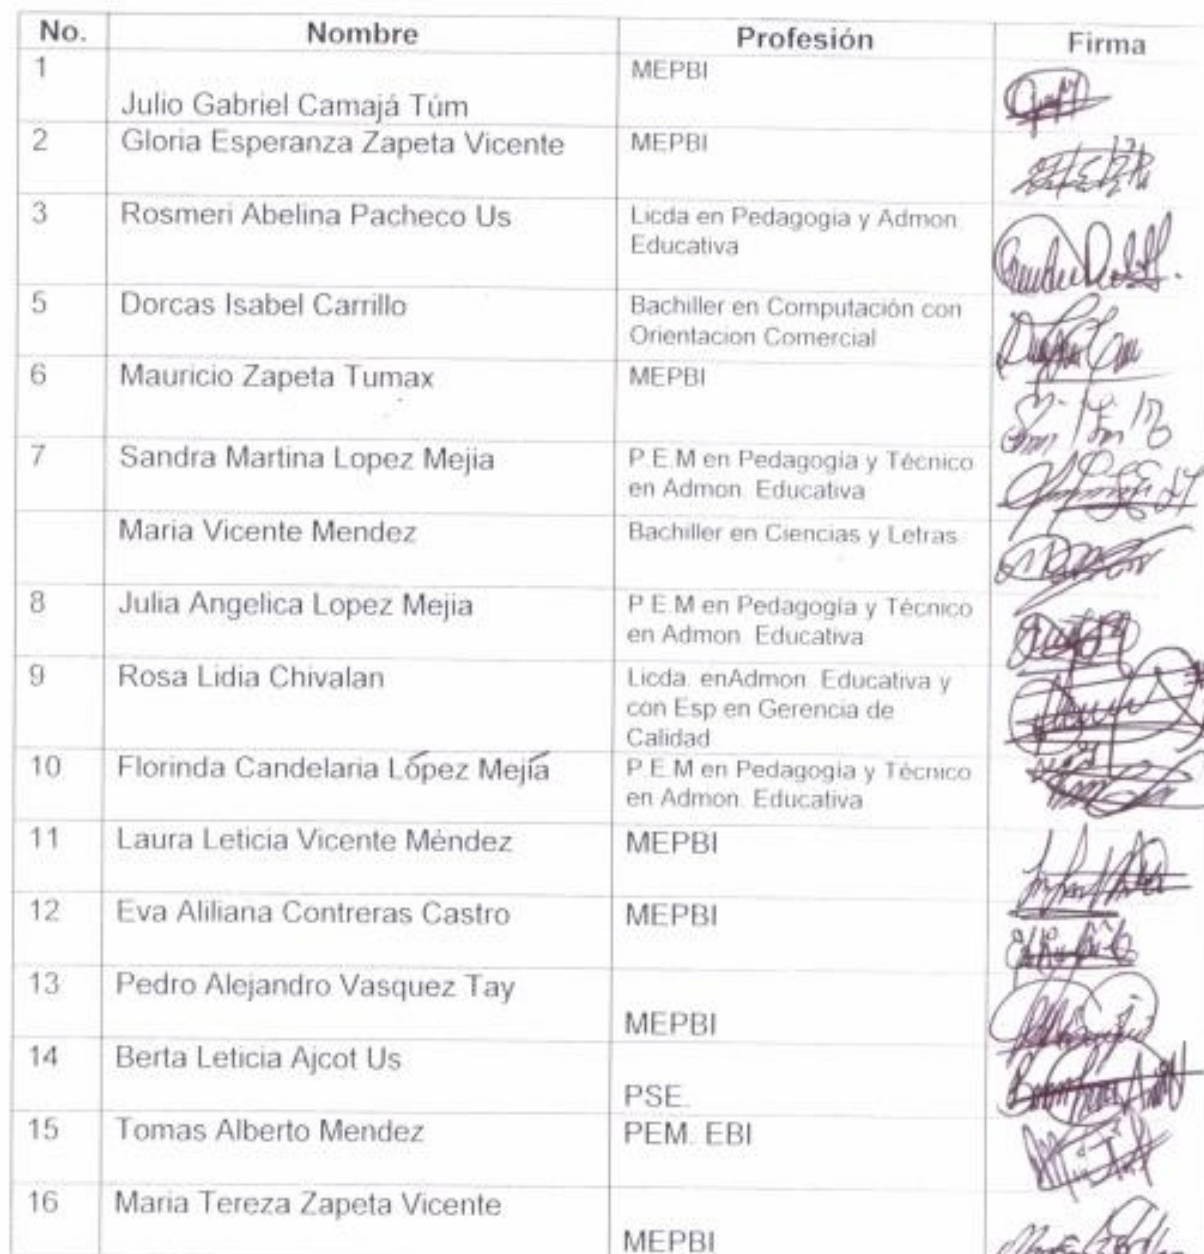 No. Nombre Profesión Firma
1 MEPBI
Julio Gabriel Camajá Túm
2 Gloria Esperanza Zapeta Vicente MEPBI
3 Rosmeri Abelina Pacheco Us Licda en Pedagogia y Admon.
Educativa
5 Dorcas Isabel Carrillo Bachiller en Computación con
Orientacion Comercial
6 Mauricio Zapeta Tumax MEPBI
7 Sandra Martina Lopez Mejia P.E.M en Pedagogia y Técnico
en Admon. Educativa
Maria Vicente Mendez Bachiller en Ciencias y Letras
8 Julia Angelica Lopez Mejia P.E.M en Pedagogia y Técnico
en Admon. Educativa
9 Rosa Lidia Chivalan Licda. enAdmon. Educativa y
con Esp en Gerencia de
Calidad
10 Florinda Candelaria López Mejía P.E.M en Pedagogia y Técnico
en Admon. Educativa
11 Laura Leticia Vicente Méndez MEPBI
12 Eva Aliliana Contreras Castro MEPBI
13 Pedro Alejandro Vasquez Tay
MEPBI
14 Berta Leticia Ajcot Us
PSE.
15 Tomas Alberto Mendez PEM. EBI
16 Maria Tereza Zapeta Vicente
MEPBI